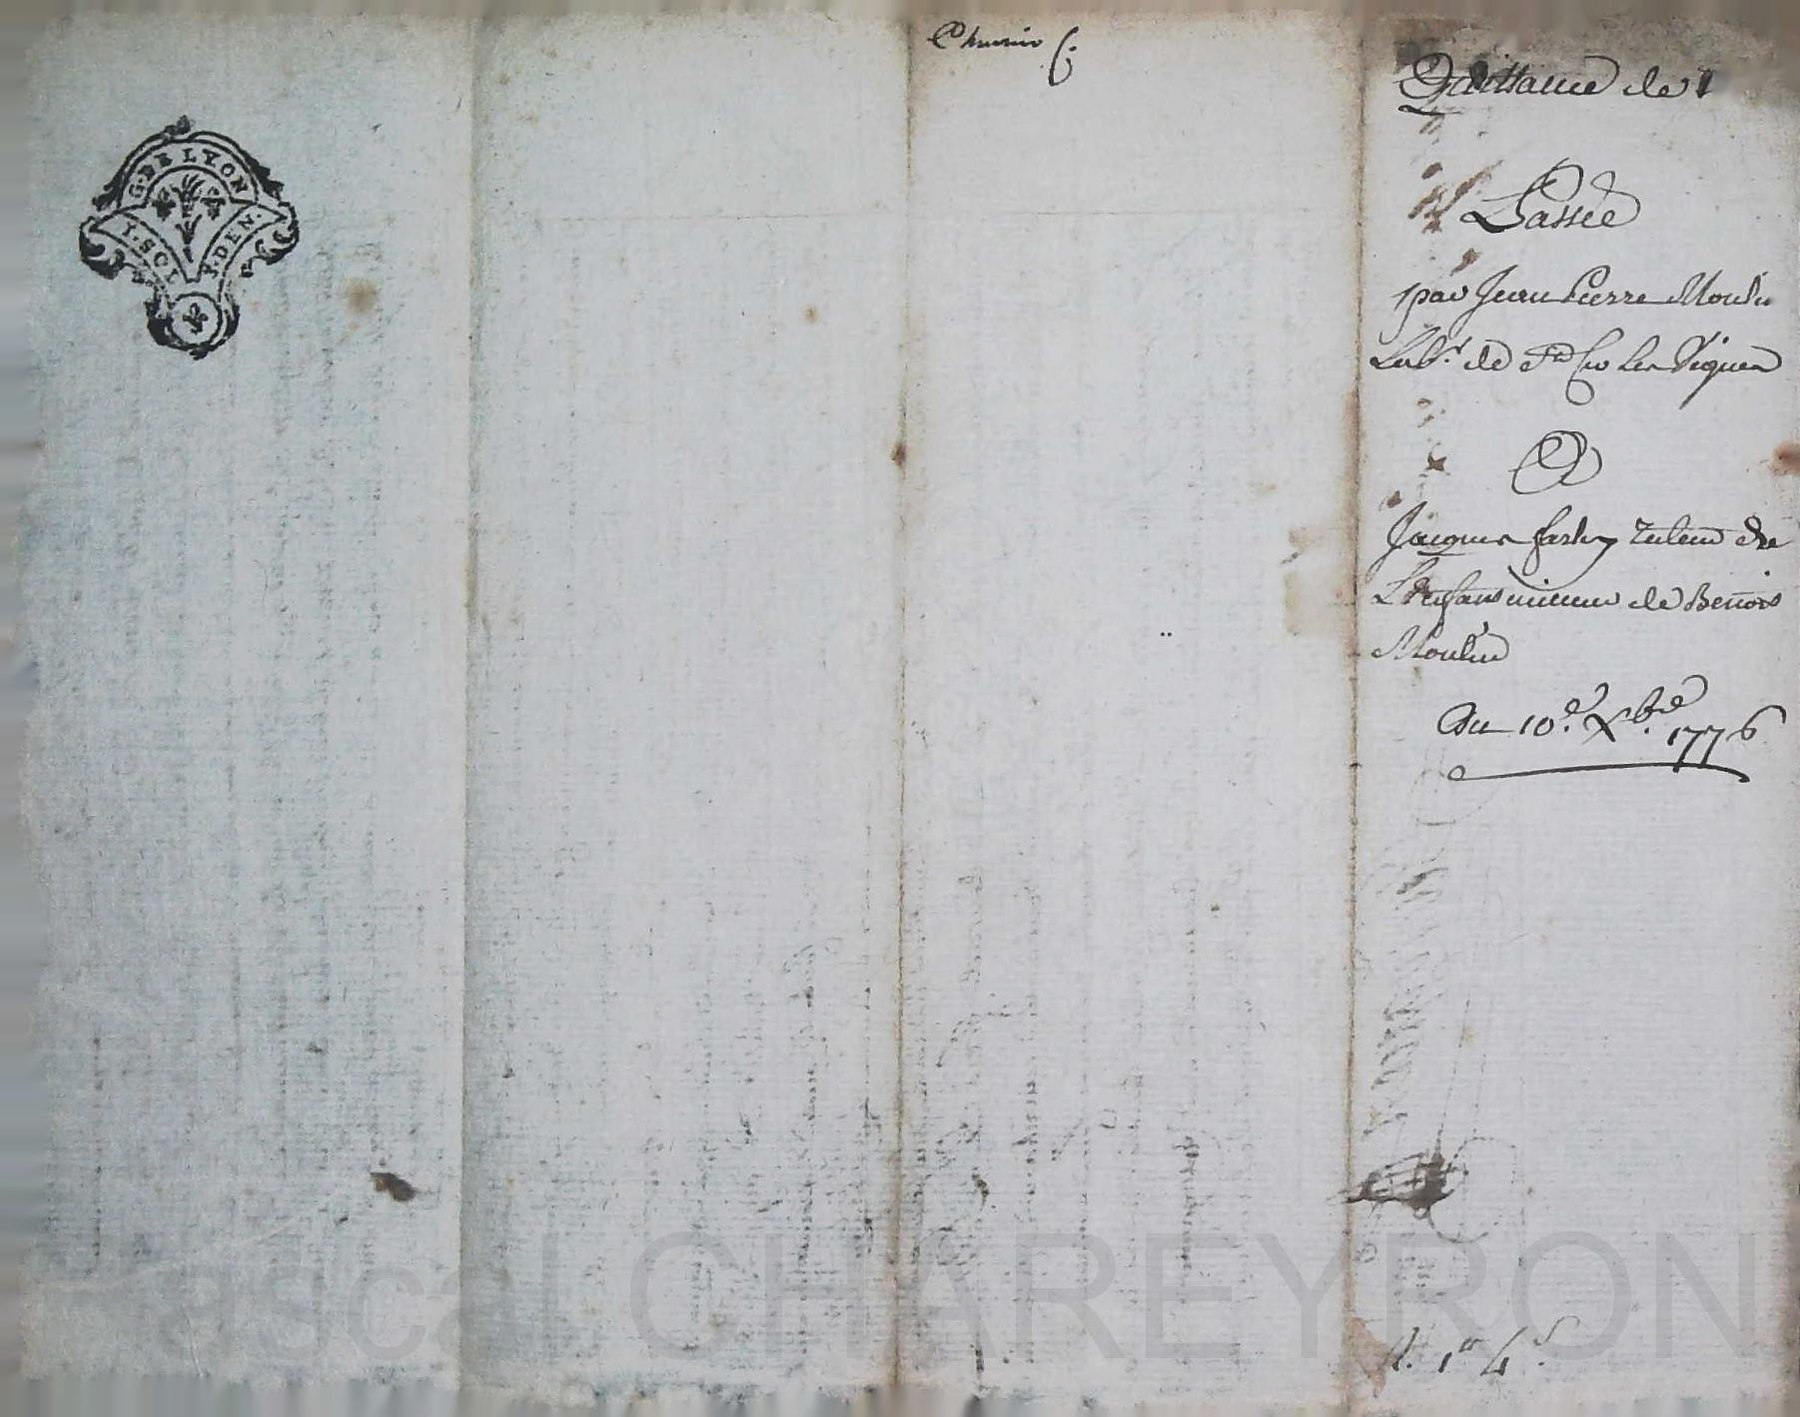 G. DE LYON
1. SOL 8. DEN.
Quittance de
Passée
par Jean Pierre Moulin
Lab.r de St Cir Les Vignes
A
Jacques tuteur de
L'Enfant mineur de Benois
Moulin
Du 10.e Xbre 1776
ascal CHAREYRON